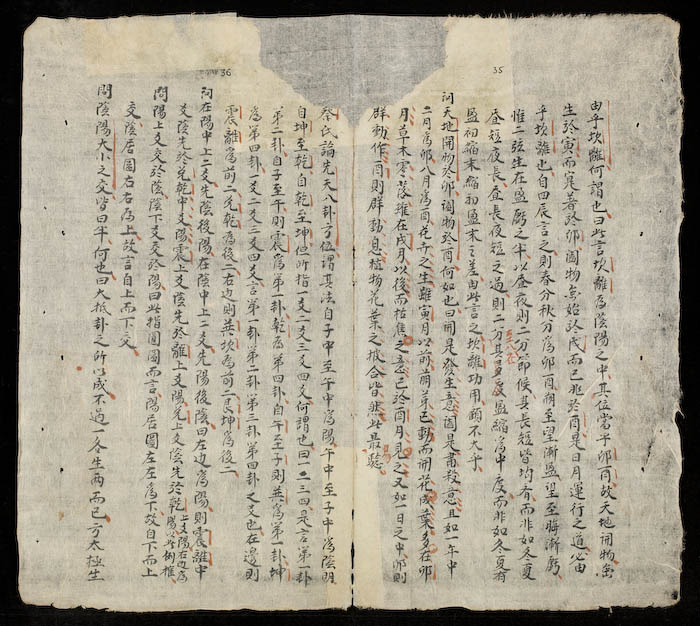 35
由乎坎離何謂也曰此言坎離為陰陽之中其位當乎卯酉故天地開物
生於寅而寔著於卯閉物始於戌而已兆於酉是日月運行之道必由
乎坎離也自四辰言之則春分秋分為卯酉朔至望漸盈望至晦漸虧
惟二弦生在盈虧之半以晝夜則二分節候其長短皆均齊而非如冬夏
晝短夜長晝長夜短之過則二分其度盈縮為中度而非如冬夏有
盈初縮末縮初盈末之差由此言之坎離功用顧不大乎
問天地開物於卯閉物於酉何如也曰開是發生意闔是肅殺意且如一年中
二月為卯八月為酉花卉之生雖寅月以前萌芽已動而開花成葉多在卯
月草木零落雖在戌月以後而枯焦之意已於酉月見之又如一日之中卯則
群動作酉則群動息植物花葉之披合皆然此最驗
36
蔡氏論先天八卦方位謂其法自子中至午中為陽午中至子中為陰明
自坤至乾自乾至坤但所指一爻二爻三爻四爻何謂也曰一二三四是言第一卦
第二卦自子至午則震為第一卦乾為第四卦自午至子則巽為第一卦坤
為第四卦一爻二爻三爻四爻言第一卦第二卦第三卦第四卦之爻也左邊則
震離為前二兌乾為後二右邊則巽坎為前二艮坤為後二
問在陽中上二爻先陰後陽在陰中上二爻先陽後陰曰左邊為陽則震離中
爻陰先於兌乾中爻陽震上爻陰先於離上爻陽兌上爻陰先於乾上爻陽右邊為陽此例推
問陽上爻交於陰陰下爻交於陽曰此指圓圖而言陽居圖左左為下故自下而上
交陰居圖右右為上故言自上而下交
問陰陽大小之交皆曰半何也曰大抵卦之所以成不過一各生兩而已方太極生